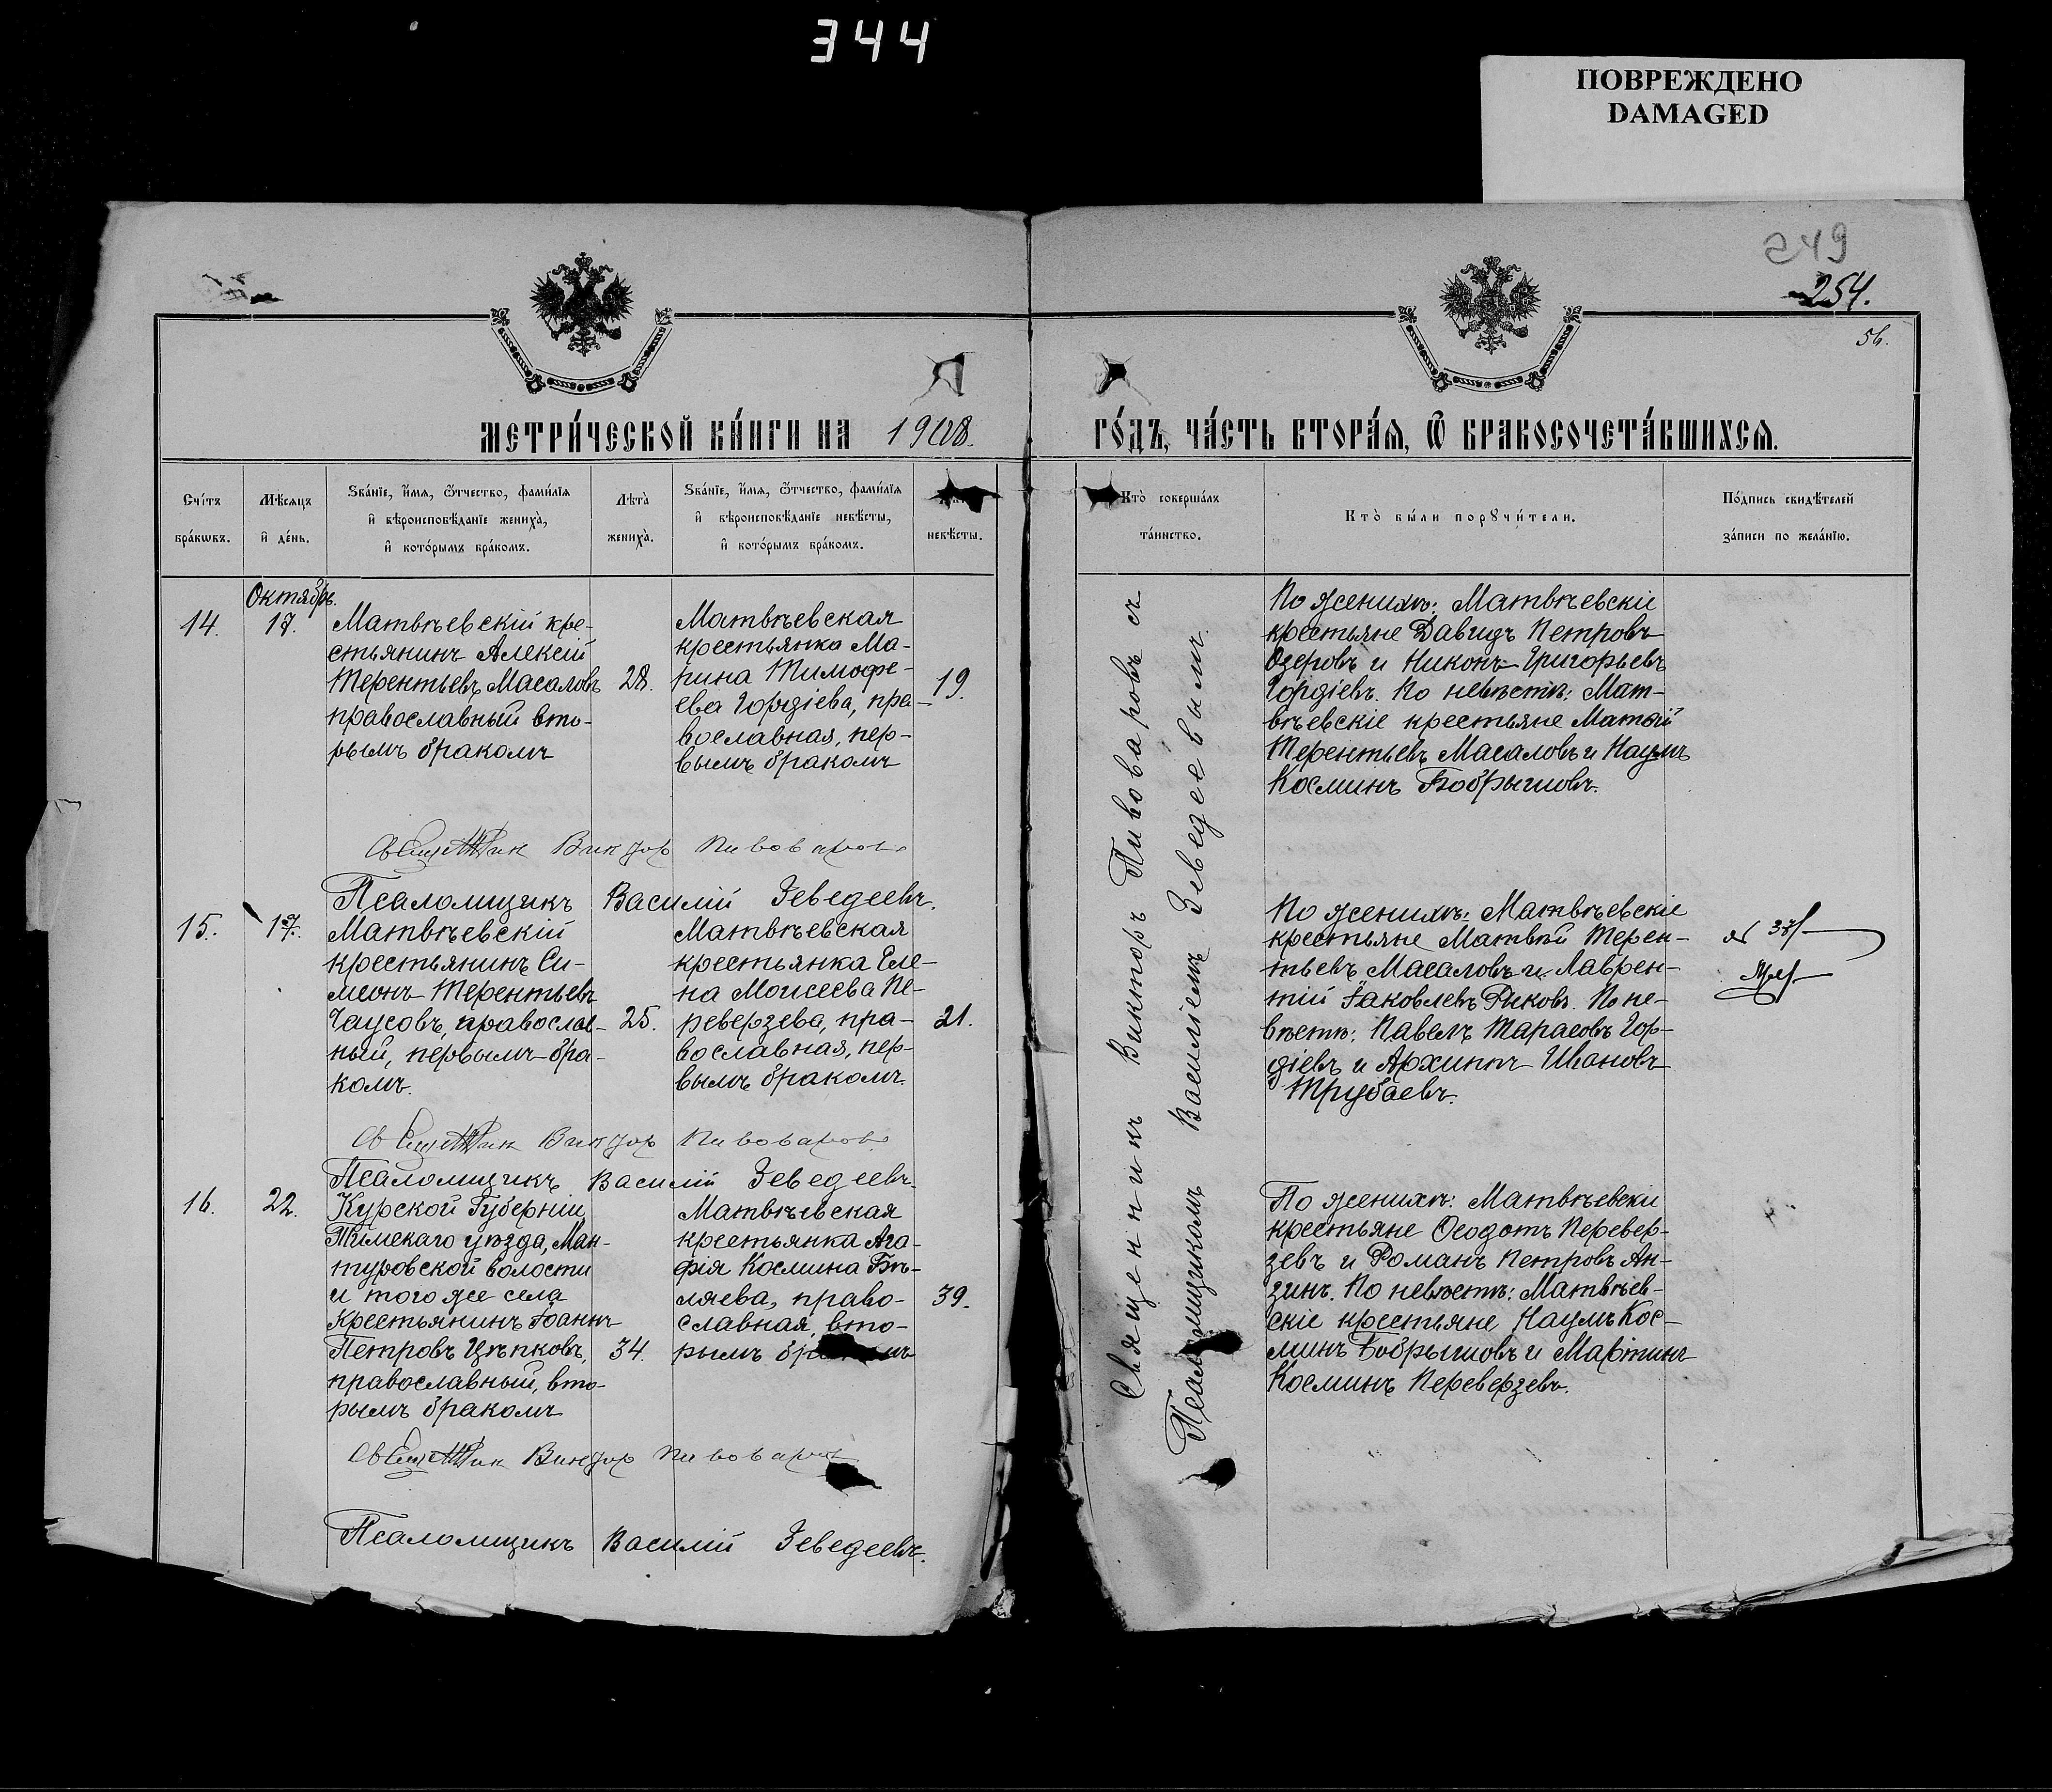 344
ПОВРЕЖДЕНО
DAMAGED
249
254.
56.
МЕТРИ́ЧЕСКОЙ КНИ́ГИ НА 1908.
ГО́ДЪ, ЧА́СТЬ ВТОРА́Ѧ, Ѿ БРАКОСОЧЕТА́ВШИХСѦ.
Сче́тъ
бра́кѡвъ.
Мѣ́сяцъ
и҆ де́нь.
Зва́нїе, и҆́мѧ, ѻ҆́тчество, фами́лїѧ
и҆ вѣроисповѣ́данїе жениха̀,
и҆ кото́рымъ бра́комъ.
Лѣта̀
жениха̀.
Зва́нїе, и҆́мѧ, ѻ҆́тчество, фами́лїѧ
и҆ вѣроисповѣ́данїе невѣ́сты,
и҆ кото́рымъ бра́комъ.
невѣ́сты.
Кто̀ соверша́лъ
та́инство.
Кто̀ бы́ли порꙋчи́тели.
По́дпись свидѣ́телей
за́писи по жела́нїю.
Октябрь.
14.
17.
Матвѣевскій кре-
стьянинъ Алексій
Терентьевъ Масаловъ
православный вто-
рымъ бракомъ
28.
Матвѣевская
крестьянка Ма-
рина Тимофе-
ева Гордіева, пра-
вославная, пер-
вымъ бракомъ
19.
Священникъ Викторъ Пивоваровъ съ
Псаломщикомъ Василіемъ Зеведеевымъ.
По женихѣ: Матвѣевскіе
крестьяне Давидъ Петровъ
Озеровъ и Никонъ Григорьевъ
Гордіевъ. По невѣстѣ: Мат-
вѣевскіе крестьяне Матвѣй
Терентьевъ Масаловъ и Наумъ
Косминъ Бобрышовъ.
Священник Виктор Пивоваров
Псаломщикъ Василій Зеведеевъ.
15.
17.
Матвѣевскій
крестьянинъ Си-
меонъ Терентьевъ
Чаусовъ, православ-
ный, первымъ бра-
комъ.
25.
Матвѣевская
крестьянка Еле-
на Моисеева Пе-
реверзева, пра-
вославная, пер-
вымъ бракомъ.
21.
По женихѣ: Матвѣевскіе
крестьяне Матвѣй Терен-
тьевъ Масаловъ и Лаврен-
тій Іаковлевъ Рыковъ. По не-
вѣстѣ: Павелъ Тарасовъ Гор-
діевъ и Архипъ Ивановъ
Трубаевъ.
Священник Виктор Пивоваров
Псаломщикъ Василій Зеведеевъ.
16.
22.
Курской Губерніи
Тимскаго уѣзда, Ман-
туровской волости
и того же села
Крестьянинъ Іоаннъ
Петровъ Цѣпковъ,
православный, вто-
рымъ бракомъ
34.
Матвѣевская
крестьянка Ага-
фія Космина Бѣ-
ляева, право-
славная, вто-
рымъ бракомъ
39.
По женихѣ: Матвѣевскіи
крестьяне Ѳеодотъ Перевер-
зевъ и Романъ Петровъ Ан-
зинъ. По невѣстѣ: Матвѣев-
скіе крестьяне Наумъ Кос-
минъ Бобрышовъ и Мартинъ
Косминъ Переверзевъ.
Священник Виктор Пивоваров
Псаломщикъ Василій Зеведеевъ.